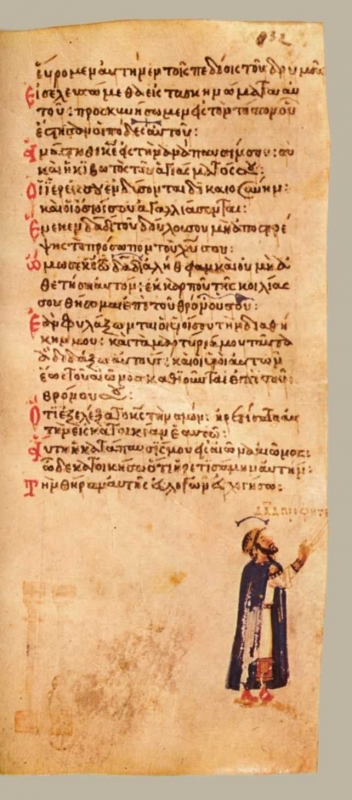 132
εὕρομεν αὐτὴν ἐν τοῖς πεδίοις τοῦ δρυμοῦ
Εἰσελευσώμεθα εἰς τὰ σκηνώματα αὐ
τοῦ: προσκυνήσωμεν εἰς τὸν τόπον οὗ
ἔστησαν οἱ πόδες αὐτοῦ:
Ἀνάστηθι κε εἰς τὴν ἀνάπαυσίν σου: σὺ
καὶ ἡ κιβωτὸς τοῦ ἁγιάσματός σου:
Οἱ ἱερεῖς σου ἐνδύσονται δικαιοσύνην:
καὶ οἱ ὅσιοί σου ἀγαλλιάσονται:
Ἕνεκεν δαδ τοῦ δούλου σου μὴ ἀποστρέ
ψῃς τὸ πρόσωπον τοῦ χυ σου:
Ὤμοσε κς τῷ δαδ ἀλήθειαν καὶ οὐ μὴ ἀ
θετήσῃ αὐτόν: ἐκ καρποῦ τῆς κοιλίας
σου θήσομαι ἐπὶ τοῦ θρόνου σου:
Ἐὰν φυλάξωνται οἱ υἱοί σου τὴν διαθή
κην μου: καὶ τὰ μαρτύριά μου ταῦτα
ἃ διδάξω αὐτούς: καὶ οἱ υἱοὶ αὐτῶν
ἕως τοῦ αἰῶνος καθιοῦνται ἐπὶ τοῦ
θρόνου σου:
Ὅτι ἐξελέξατο κς τὴν σιών: ᾑρετίσατο αὐ
τὴν εἰς κατοικίαν ἑαυτῷ:
Αὕτη ἡ κατάπαυσίς μου εἰς αἰῶνα αἰῶνος:
ὧδε κατοικήσω ὅτι ᾑρετισάμην αὐτήν:
Τὴν θήραν αὐτῆς εὐλογῶν εὐλογήσω: